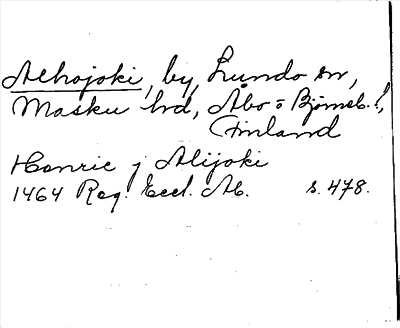 Alhojoki, by, Lundo sn,
Masku hd, Åbo o Björneb. l,
Finland
Henric j Alijoki
1464 Reg. Eccl. Ab. s. 478.